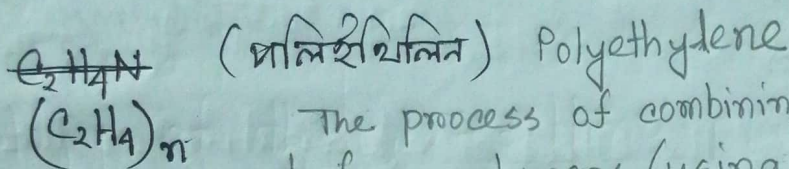 C₂H₄N (পলিইথিলিন) Polyethylene
(C₂H₄)n The process of combinin